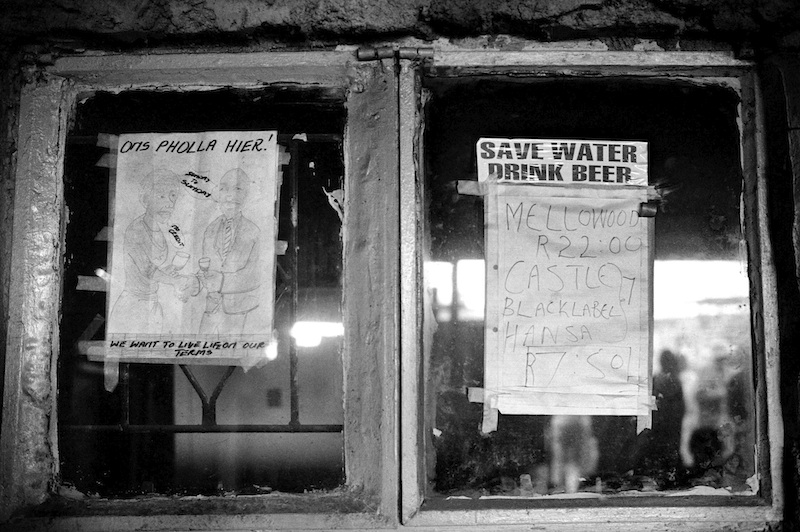 ONS PHOLLA HIER!
SUNDAY
TO
SUNDAY
NO
CREDIT
WE WANT TO LIVE LIFE ON OUR
TERMS
SAVE WATER
DRINK BEER
MELLOWOOD
R22:00
CASTLE
BLACKLABEL
HANSA
R7:50